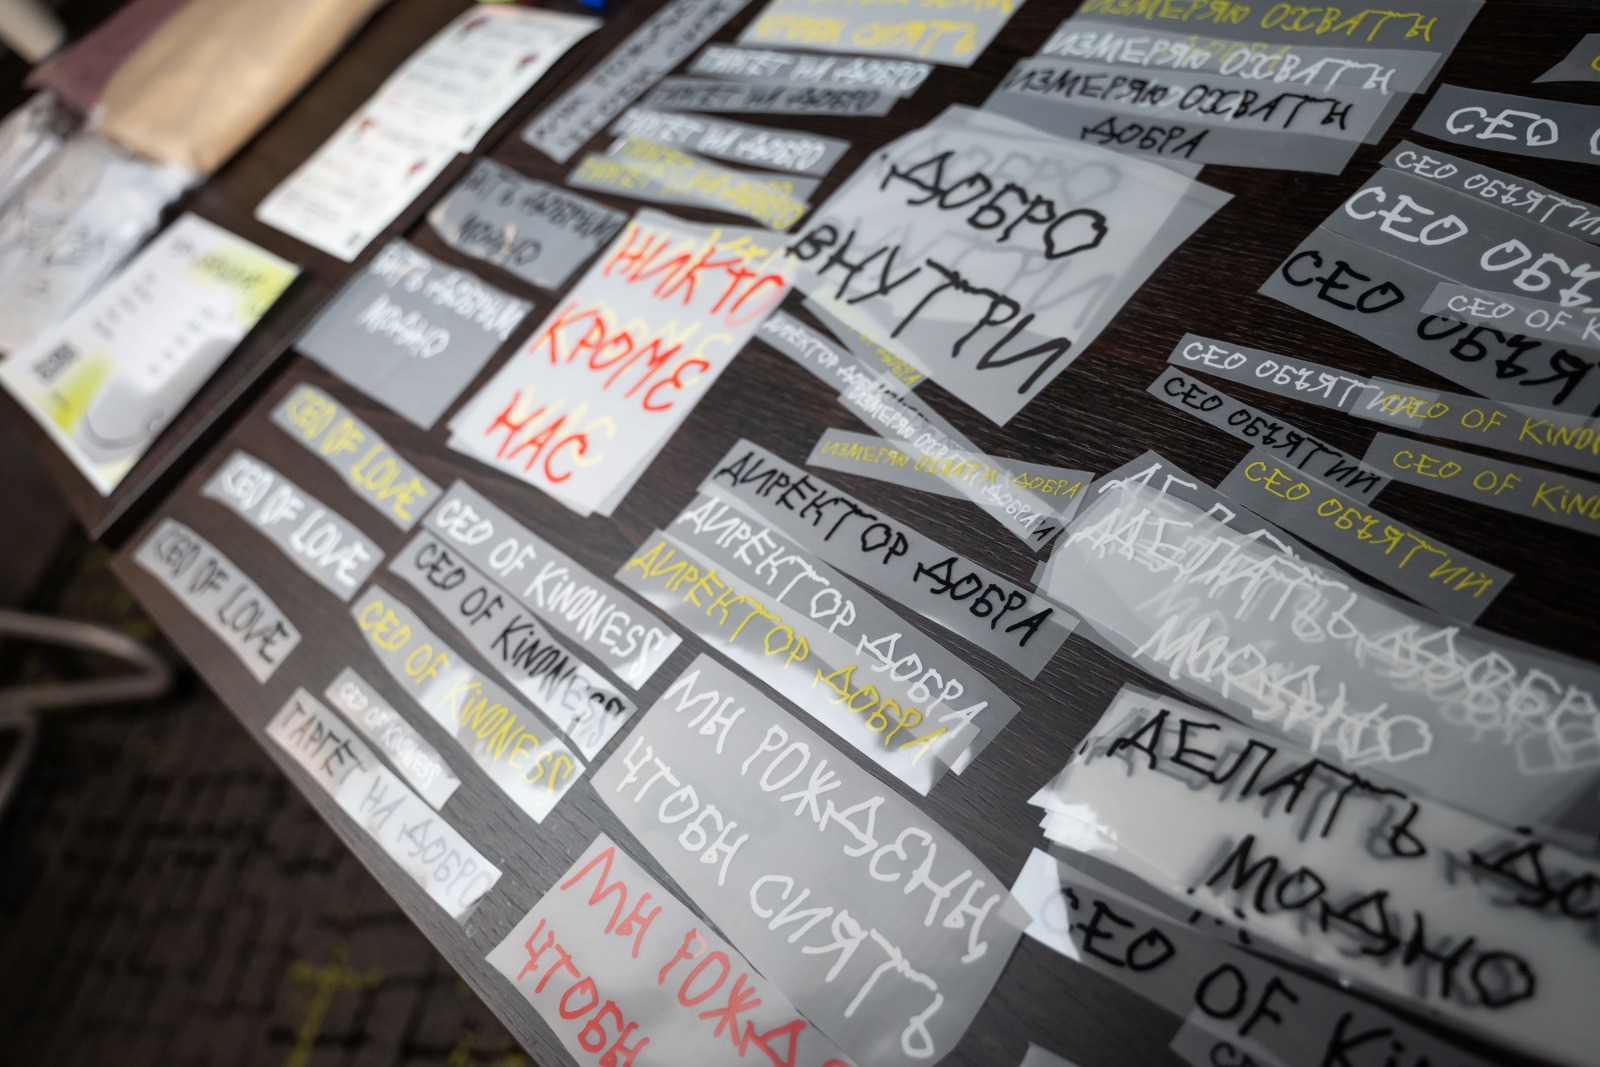 ИЗМЕРЯЮ ОХВАТЫ
ЧТОБЫ СИЯТЬ
ИЗМЕРЯЮ ОХВАТЫ
ТАРГЕТ НА ДОБРО
ТАРГЕТ НА ДОБРО
ИЗМЕРЯЮ ОХВАТЫ
ДОБРА
CEO
ТАРГЕТ НА ДОБРО
ТАРГЕТ НА ДОБРО
ДОБРО
ВНУТРИ
CEO ОБЪЯТИЙ
CEO ОБЪЯ
CEO ОБЪЯТ
CEO OF K
БЫТЬ ДОБРЫМ
МОДНО
БЫТЬ ДОБРЫМ
МОДНО
НИКТО
КРОМЕ
НАС
ДИРЕКТОР ДОБРА
ИЗМЕРЯЮ ОХВАТЫ ДОБРА
ИЗМЕРЯЮ ОХВАТЫ ДОБРА
CEO ОБЪЯТИЙ
CEO OF KIND
CEO ОБЪЯТИЙ
CEO OF KIND
CEO ОБЪЯТИЙ
CEO OF LOVE
CEO OF LOVE
CEO OF LOVE
CEO OF KINDNESS
CEO OF KINDNESS
CEO OF KINDNESS
CEO OF KINDNESS
ДИРЕКТОР ДОБРА
ДИРЕКТОР ДОБРА
ДИРЕКТОР ДОБРА
ДЕЛАТЬ ДОБРО
МОДНО
ТАРГЕТ НА ДОБРО
МЫ РОЖДЕНЫ
ЧТОБЫ СИЯТЬ
ДЕЛАТЬ ДО
МОДНО
МЫ РОЖД
ЧТОБЫ
CEO OF KIN